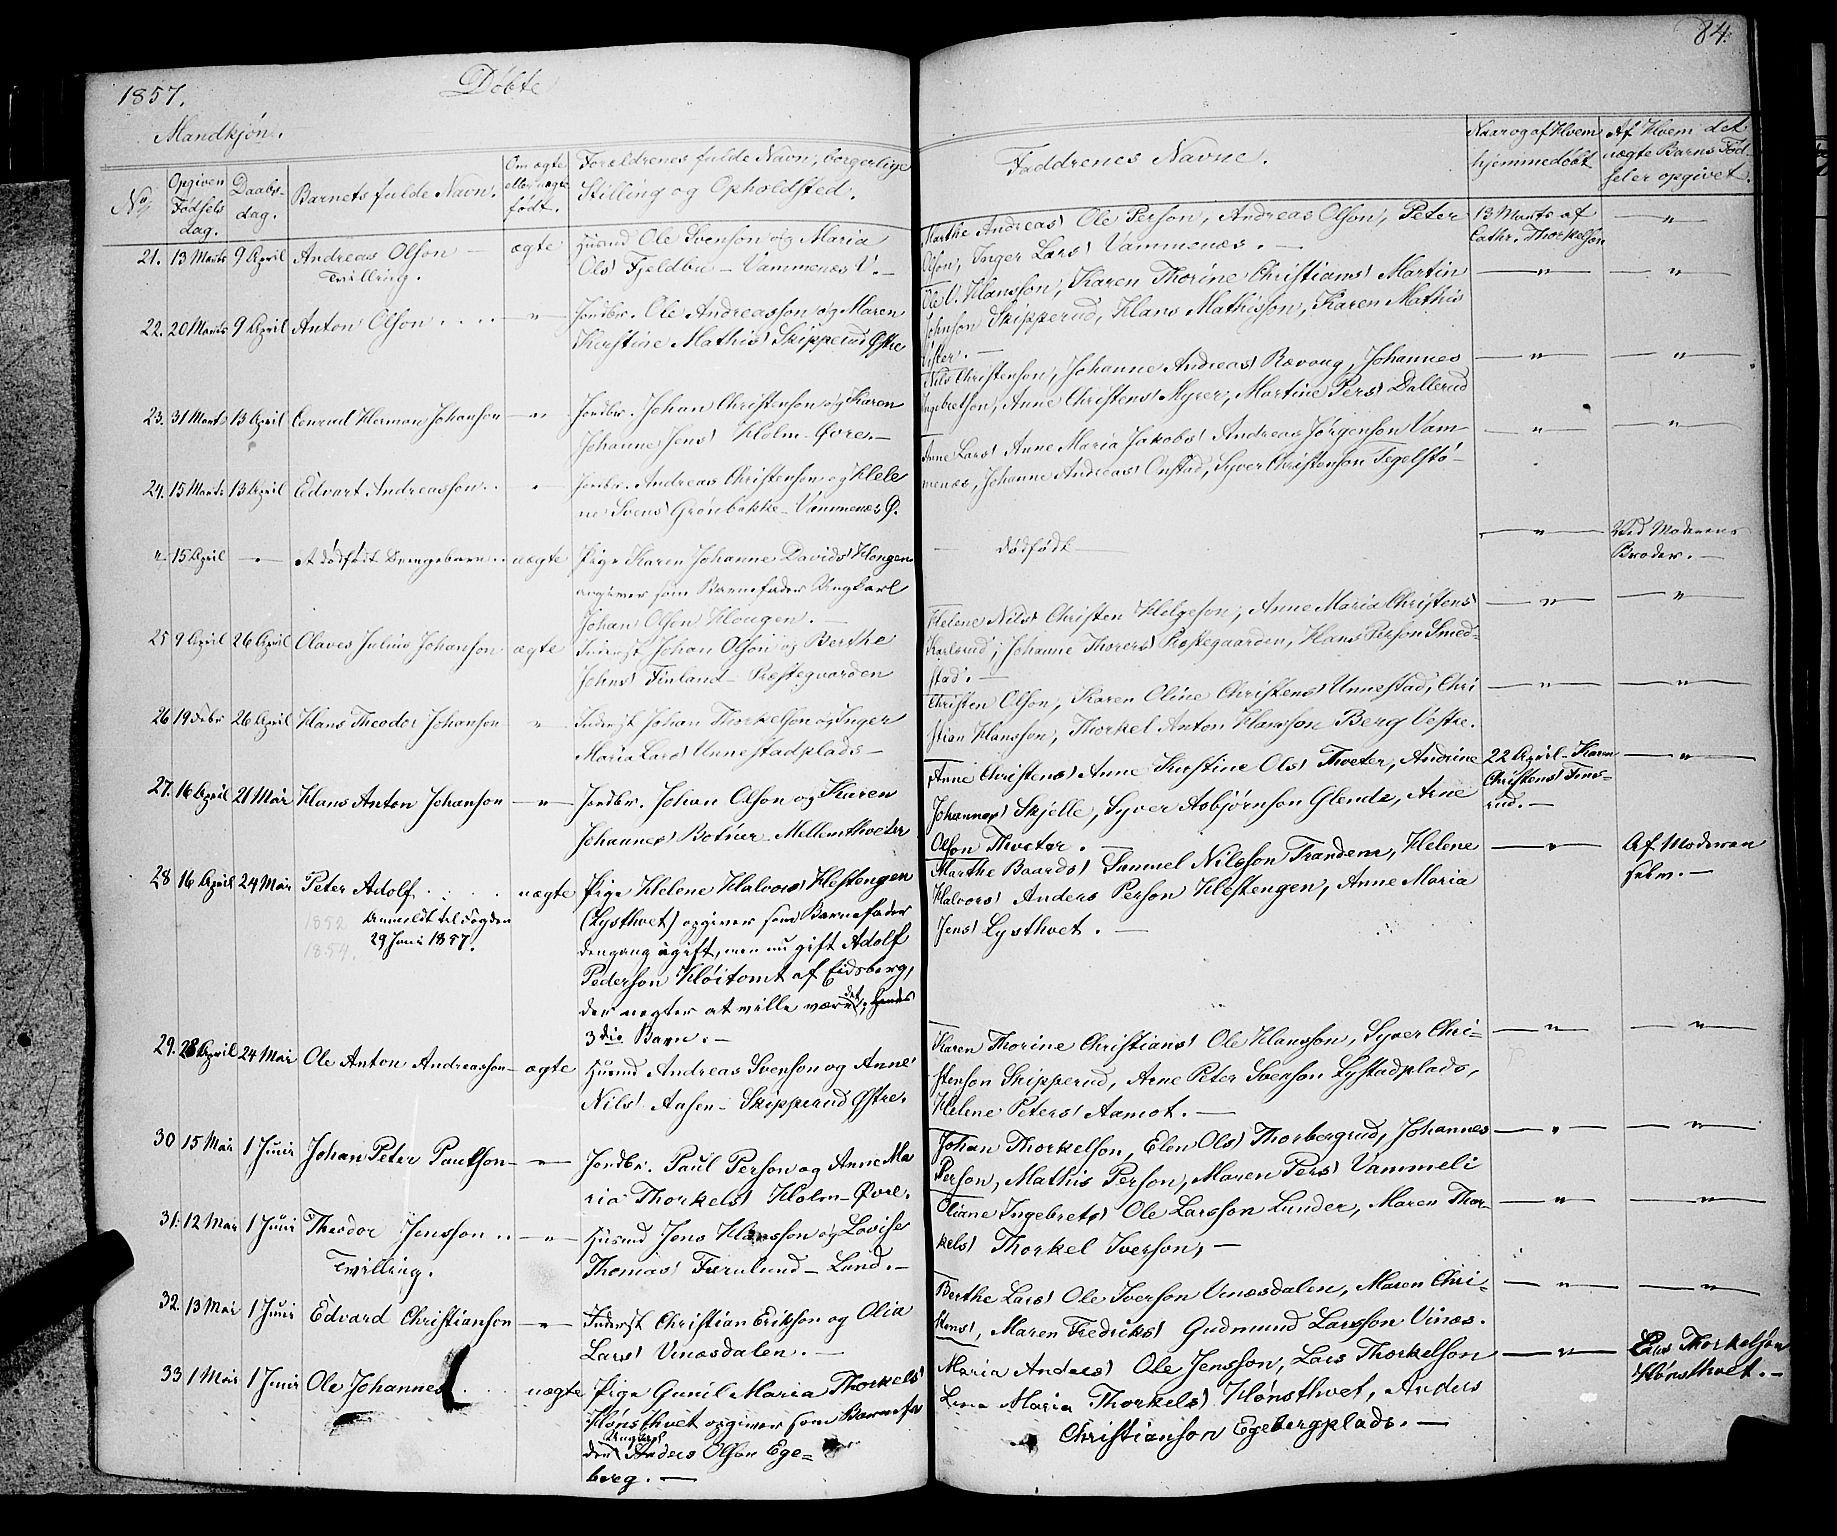 1857.
Döbte
84.
Mandkjön.
No
Opgiven Födsels dag.
Daabs-dag.
Barnets fulde Navn.
Om ægte eller uægte födt.
Forældrenes fulde Navn, borgerlige Stilling og Opholdsted.
Faddrenes Navne.
Naar og af Hvem hjemmedöbt
Af Hvem det uægte Barns Födsel er opgivet.
21. 13 Marts 9 April Andreas Olson ægte Husmd Ole Svenson og Maria
Tvilling. Ols' Fjeldbu - Vammenæs V.
Marthe Andreas' Ole Person, Andreas Olson, Peter
Olson, Inger Lars' Vammenæs. —
13 Marts af
Cathr. Thorkelson
22. 20 Marts 9 April Anton Olson . . . . " Jordbr. Ole Andreasson og Maren
Kirstine Mathis' Skipperud Østre
Ole V. Hansson, Karen Thorine Christians' Martin
Johnson Skipperud, Hans Mathisson, Karen Mathis
23. 31 Marts 13 April Conrad Herman Johanson — " Jordbr. Johan Christenson og Karen
Johanne Jens' Holm - Øvre. —
Nils Christenson, Johanne Andreas' Rævaug, Johannes
Ingebretson, Anne Christens' Myrer, Martine Pers' Dallerud
24. 15 Marts 13 April Edvart Andreasson . . " Jordbr. Andreas Christenson og Hele
ne Svens' Grönbakke - Vammenæs Ø.
Anne Lars' Anne Maria Jakobs' Andreas Jörgenson Vam-
menæs, Johanne Andreas' Onstad, Syver Christenson Tegelstö-
" 15 April — Et dödfödt Drengebarn . . uægte Pige Karen Johanne Davids' Hougen
angiver som Barnefader Ungkarl
Johan Olsen Hougen. —
— dödfödt —
Ved Moderens
Broder. —
25 9 April 26 April Olaves Julius Johanson ægte Inderst Johan Olson og Berthe
Johns' Finland - Præstegaarden
Helene Nils' Christen Helgeson, Anne Maria Christens'
Karlsrud, Johanne Thorers' Præstegaarden, Hans Person Smed-
stad. —
26 19 Febr 26 April Hans Theodor Johanson " Inderst Johan Thorkelson og Inger
Maria Lars' Unnestadplads —
Christen Olson, Karen Oline Christens' Unnestad, Chri
stian Hansson, Thorkel Anton Hansson Berg Vestre.
27. 16 April 21 Mai Hans Anton Johanson — " Jordbr. Johan Olson og Karen
Johannes' Botner - Mellemthveter
Anne Christens' Anne Kirstine Ols' Thveter, Andrine
Johannes' Skjelle, Syver Asbjörnson Glende, Arne
Olson Thveter. —
22 April - Karen
Christens' Fins-
rud. —
28 16 April 24 Mai Peter Adolf . . . . uægte Pige Helene Halvors' Hestengen
Anmeldt til Fogden
29 Juni 1857.
1852
1854.
(Lysthvet) opgiver som Barnefader
dengang ugift, men nu gift Adolf
Pederson Klöitomt af Eidsberg,
der negter at ville være det, hendes
3die Barn. —
Marthe Baards' Samuel Nilsson Trandem, Helene
Halvors' Anders Person Hestengen, Anne Maria
Jens' Lysthvet. —
Af Moderen
selv. —
29. 28 April 24 Mai Ole Anton Andreasson — ægte Husmd Andreas Svenson og Anne
Nils' Aasen - Skipperud Østre.
Karen Thorine Christians' Ole Hansson, Syver Chri-
stenson Skipperud, Arne Peter Svenson Lystadplads,
Helene Peters' Aamot. —
30 15 Mai 1 Juni Johan Peter Paulson — " Jordbr. Paul Person og Anne Ma
ria Thorkels' Holm - Øvre.
Johan Thorkelson, Elen Ols' Thorbergrud, Johannes
Person, Mathis Person, Maren Pers' Vammeli
31. 12 Mai 1 Juni Theodor Jensson . . — " Husmd Jens Hansson og Lovise
Tvilling. Thomas' Furulund - Lund. —
Oliane Ingebrets' Ole Larsson Lunder, Maren Thor-
kels' Thorkel Iverson, —
32. 13 Mai 1 Juni Edvard Christianson — " Inderst Christian Erikson og Olia
Lars' Vinæsdalen. —
Berthe Lars' Ole Iverson Vinæsdalen, Maren Chri-
stens', Maren Fredriks' Gudmund Larsson Vinæs.
33 1 Mai 1 Juni Ole Johannes . . uægte Pige Gunil Maria Thorkels'
Hönsthvet opgiver som Barnefa
der Ungkarl Anders Olson Ege-
berg. —
Maria Anders' Ole Jensson, Lars Thorkelson
Lina Maria Thorkels' Hönsthvet, Anders
Christianson Egebergplads. —
Lars Thorkelson
Hönsthvet. —